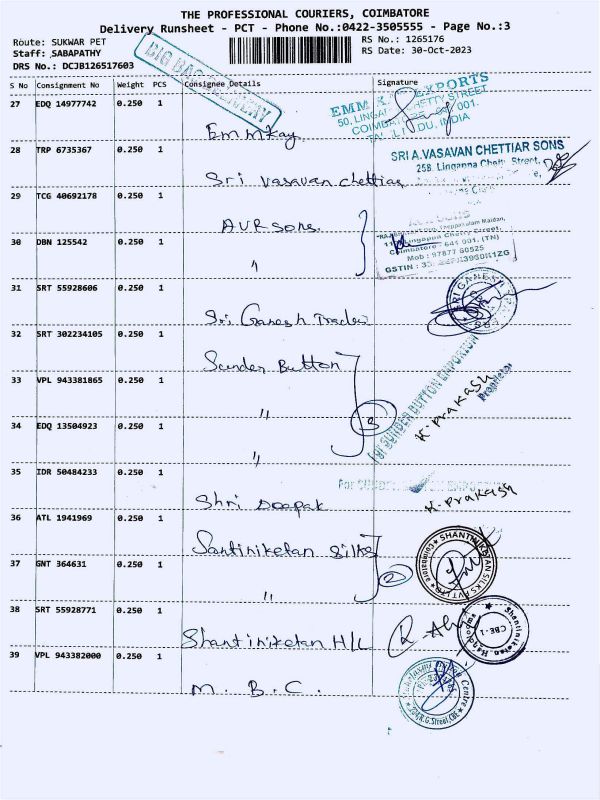 THE PROFESSIONAL COURIERS, COIMBATORE
Delivery Runsheet - PCT - Phone No.:0422-3505555 - Page No.:3
Route: SUKWAR PET
RS No.: 1265176
Staff: SABAPATHY
RS Date: 30-Oct-2023
DRS No.: DCJB126517603
BIG BAG DELIVERY
S No Consignment No Weight PCS Consignee Details Signature
27 EDQ 14977742 0.250 1 Emmkay
EXPORTS
COIMBATORE 001.
INDIA
28 TRP 6735367 0.250 1 Sri vasavan chettiar
SRI A.VASAVAN CHETTIAR SONS
25B, Lingappa Chetti Street,
29 TCG 40692178 0.250 1 AVR Sons.
30 DBN 125542 0.250 1 "
Lingappa Chetty Street,
Coimbatore - 641 001. (TN)
Mob : 97877 60525
31 SRT 55928606 0.250 1 Sri Ganesh Trader
32 SRT 302234105 0.250 1 Sunder Button
33 VPL 943381865 0.250 1 "
34 EDQ 13504923 0.250 1 "
3
For SUNDER BUTTON EMPORIUM
K. Prakash
Proprietor
35 IDR 50484233 0.250 1 Shri Deepak
K. Prakash
36 ATL 1941969 0.250 1 Santiniketan Silks
37 GNT 364631 0.250 1 "
2
SHANTINIKETAN SILKS PVT LTD
Coimbatore
38 SRT 55928771 0.250 1 Shantiniketan H/L
Shantiniketan Handlooms
CBE-1
39 VPL 943382000 0.250 1 M. B. C.
R.G.Street, CBE